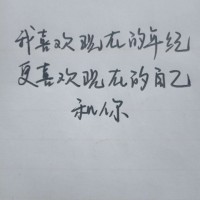 我喜欢现在的年纪
更喜欢现在的自己
和你